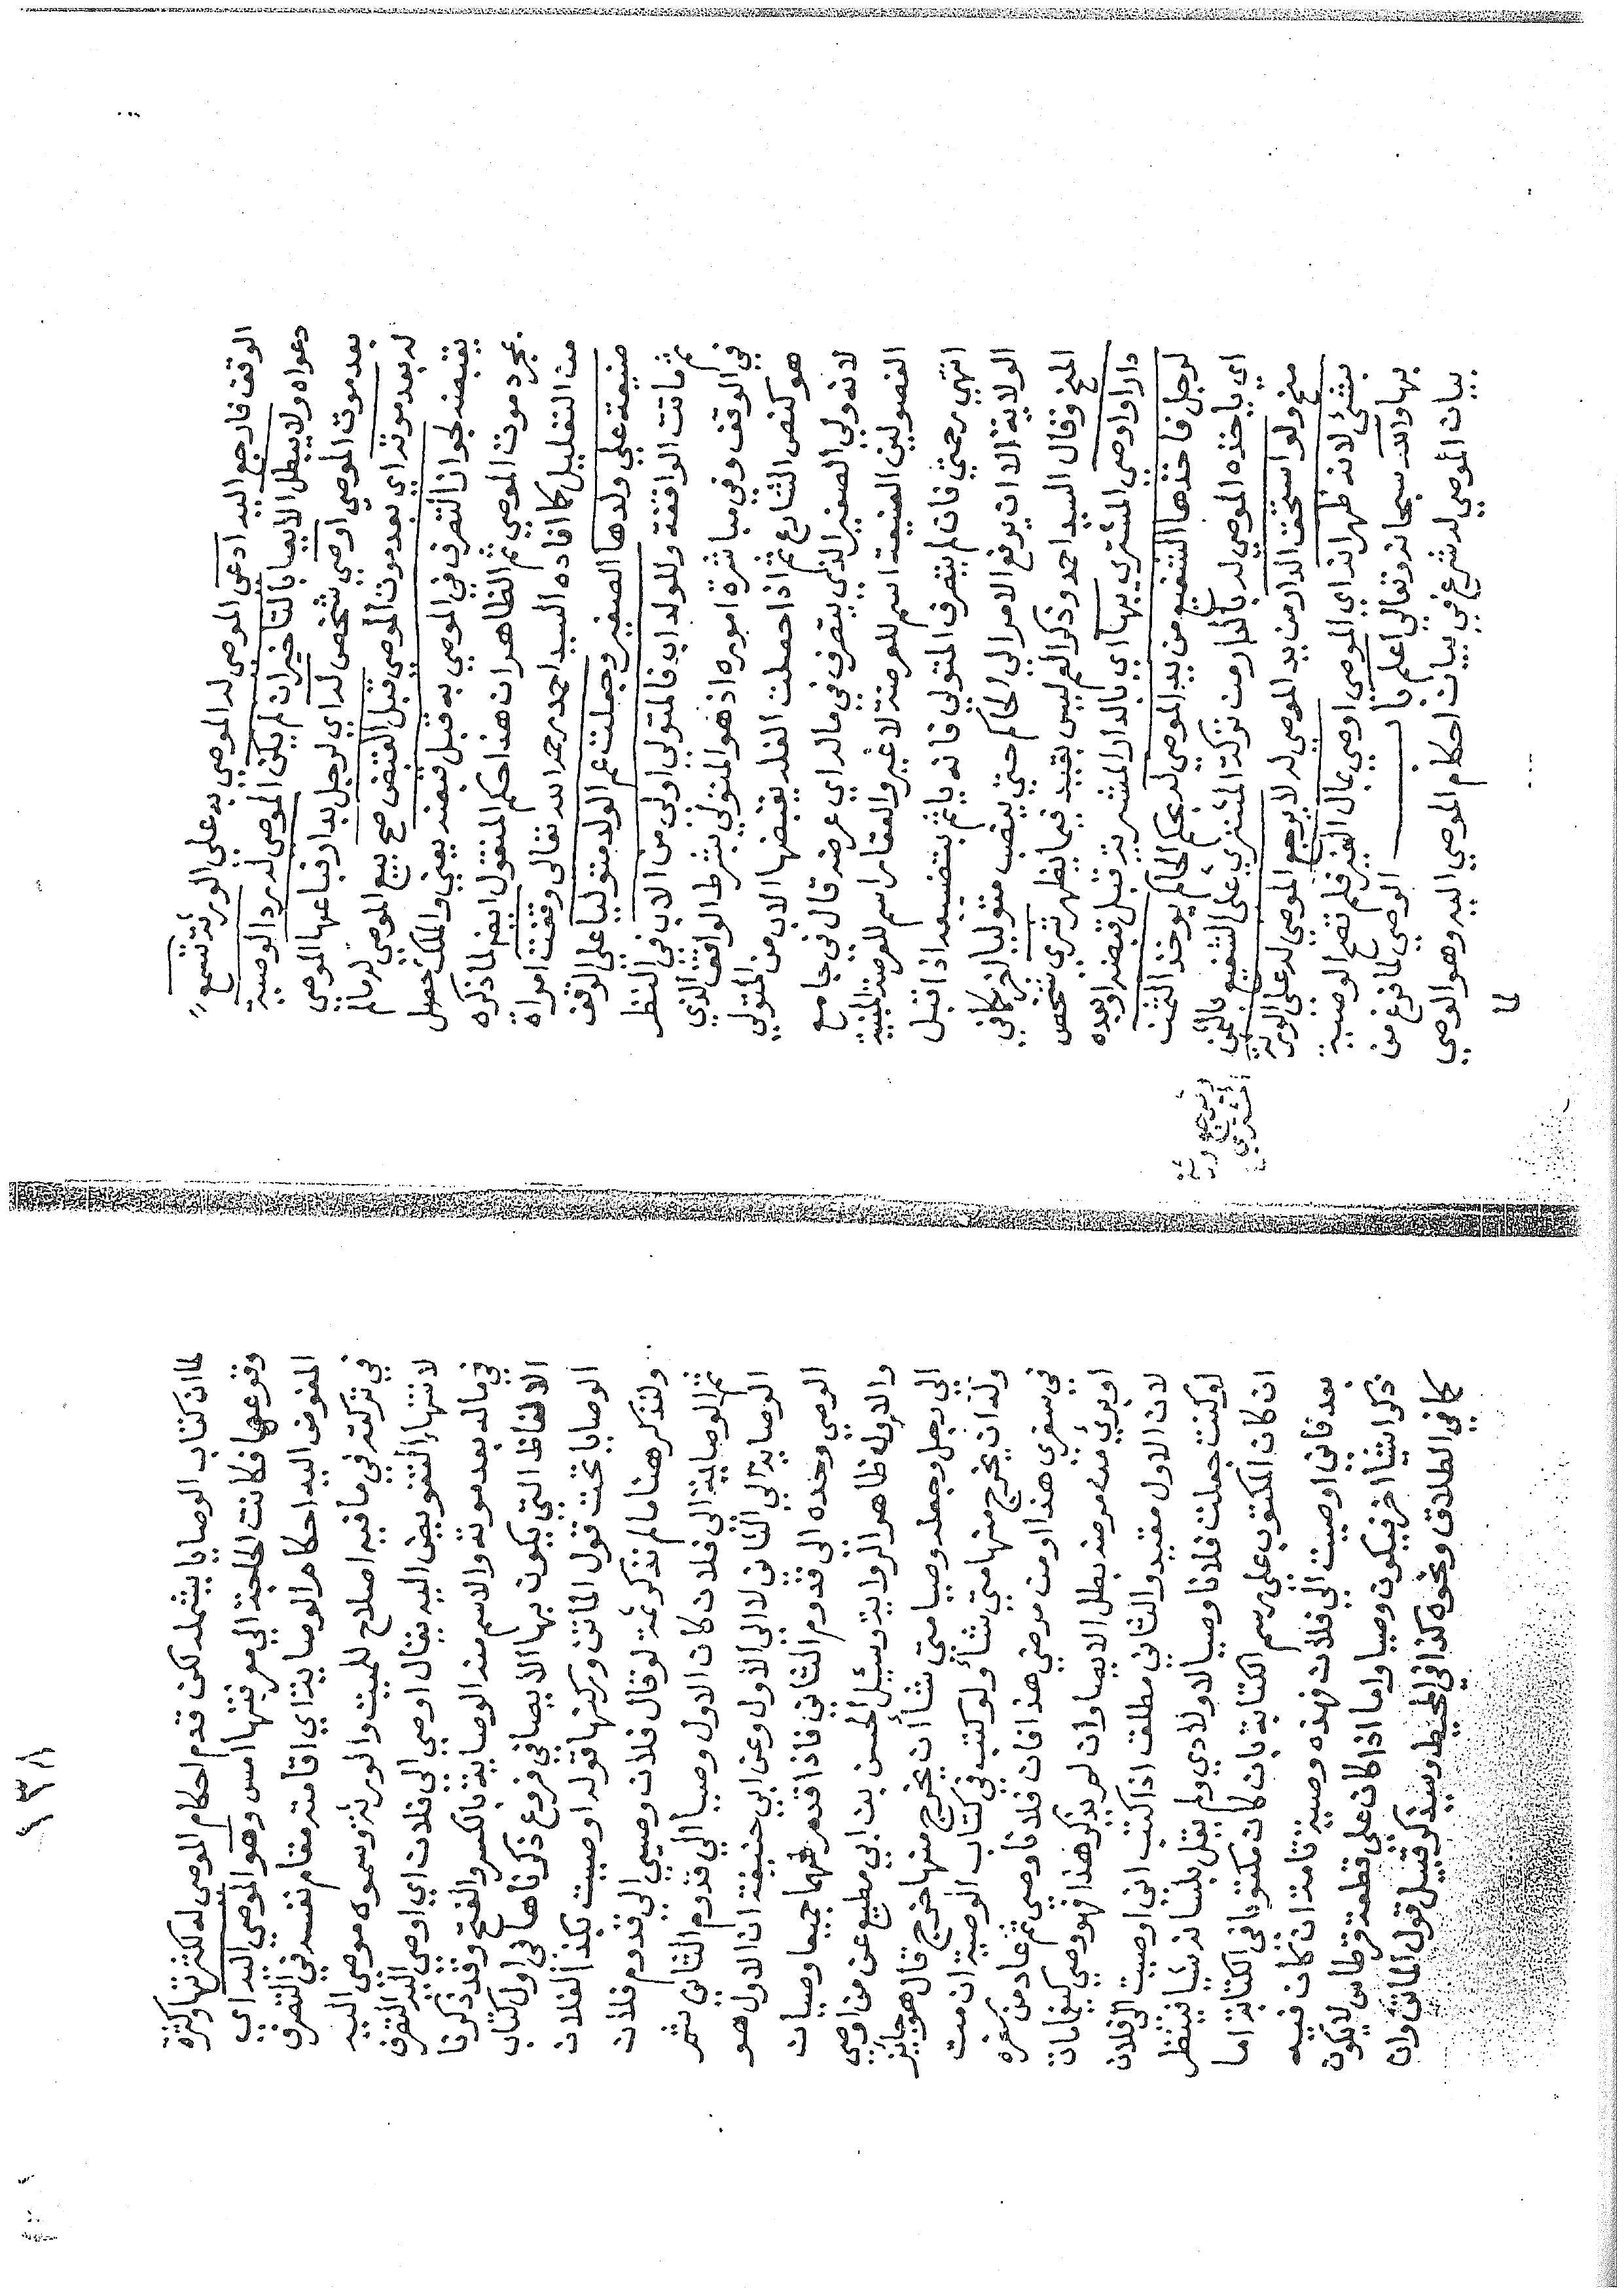 الوقف فارجع اليه ادعى الموصى له الموصي به على الورثة تسمع
دعواه ولا يبطل الايصا بالتاخير ان لم يكن الموصى له رد الوصية
بعد موت الموصي اوصي شخص له اي لرجل بدار فباعها الموصي
له بعد موته اي بعد موت الموصي قبل القبض صح بيع الموصي له مالم
يقبضه لجواز التصرف في الموصي به قبل قبضه يعني والملك حصل
بمجرد موت الموصي ثم الظاهر ان هذا حكم المنقول ايضا لما ذكره
من التعليل كما افاده السيد احمد رحمه الله تعالى وقفت امراة
ضيعة على ولدها الصغير وجعلت عم الولد متوليا على الوقف
ثم ماتت الواقفة وللولد اب فالمتولي اولى من الاب في النظر
في الوقف وفي مباشرة اموره اذ هو المتولي بشرط الواقف الذي
هو كنص الشارع ثم اذا حصلت الغلة يقبضها الاب من المتولي
لانه ولي الصغير الذي يتصرف في ماله اي عرضه قال في جامع
الفصولين الضيعة اسم للعرصة لا غير والعقار اسم للعرصة المبنية
انتهى رحمتي فان لم يتصرف المتولي فانه ياثم بتضييعه اذا قبل
الولاية الا ان يرفع الامر الى الحاكم حتى ينصب متوليا اخر كما في
المنح وقال السيد احمد وذكر العم ليس بقيد فيما يظهر شري شخص
دارا واوصي المشتري بها اي بالدار المشرية قبل قبضه او بعده
لرجل فاخذها الشفيع من يد الموصي له بحكم الحاكم يوخذ الثمن
اي ياخذه الموصي له بالدار من تركة المشتري على الشفيع بالثمن
منح ولو استحقت الدار من يد الموصي له لا يرجع الموصي له على الورثة
بشئ لانه ظهر انه اي الموصي اوصي بمال الغير فلم تصح الوصية
بها والله سبحانه وتعالى اعلم باب الوصي لما فرغ من
بيان الموصي له شرع في بيان احكام الموصي اليه وهو الوصي
لما
١٣٨
لما ان كتاب الوصايا يشمله لكن قدم احكام الموصى له لكثرتها وكثرة
وقوعها فكانت الحاجة الى معرفتها امس وهو الموصي اليه اي
المفوض اليه احكام الوصاية اي اقامته مقام نفسه في التصرف
في تركته في ما فيه اصلاح للميت والورثة وسموه موصى اليه
لانتهاء التفويض اليه يقال اوصي الى فلان اي اوصي اليه التصرف
في ماله بعد موته والاسم منه الوصاية بالكسر والفتح وقد ذكرنا
الالفاظ التي يكون بها الايصا في فروع ذكرناها في اول كتاب
الوصايا تحت قول الماتن وركنها قوله اوصيت بكذا لفلان
ولنذكر هنا مالم نذكر ثمة لو قال فلان وصيي الى قدوم فلان
ثم الوصاية الى فلان كان الاول وصيا الى قدوم الثاني ثم
الوصاية الى الثاني لا الى الاول وعن ابي حنيفة ان الاول هو
الوصي وحده الى قدوم الثاني فاذا قدم فهما جميعا وصيان
والاول ظاهر الرواية وسئل الحسن بن ابي مطيع عن من اوصي
الى رجل وجعله وصيا متى شاأن يخرج منها خرج قال هو جايز
وله ان يخرج منها متى شأ ولو كتب في كتاب الوصية ان مت
في سفري هذا او من مرضي هذا فان فلانا وصي ثم عاد من سفره
او برئ من مرضه بطل الايصا وان لم يذكر هذا فهو وصي كيف مات
لان الاول مقيد والثاني مطلق اذا كتب اني اوصيت الى فلان
لو كنت جعلت فلانا وصيا لاولادي ولم يقل بلسانه شيا ينظر
ان كان المكتوب على رسم الكتابة بان كان مكتوبا في الكتابة اما
بعد فاني اوصيت الى فلان فهذه وصية تامة ان كان فيه
ذكر اشيأ اخر فيكون وصيا واما اذا كان على قطعة قرطاس لا يكون
كما في الطلاق ونحوه كذا في المحيط وسيذكر قبيل قول الماتن وان